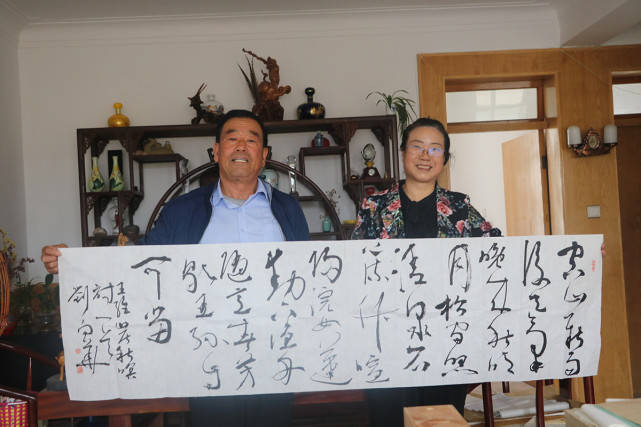 空山新雨
後天氣
晚来秋明
月松间照
清泉石
上流竹喧
歸浣女蓮
動下渔舟
随意春芳
歇王孙自
可留
王維山居秋暝
詩一首